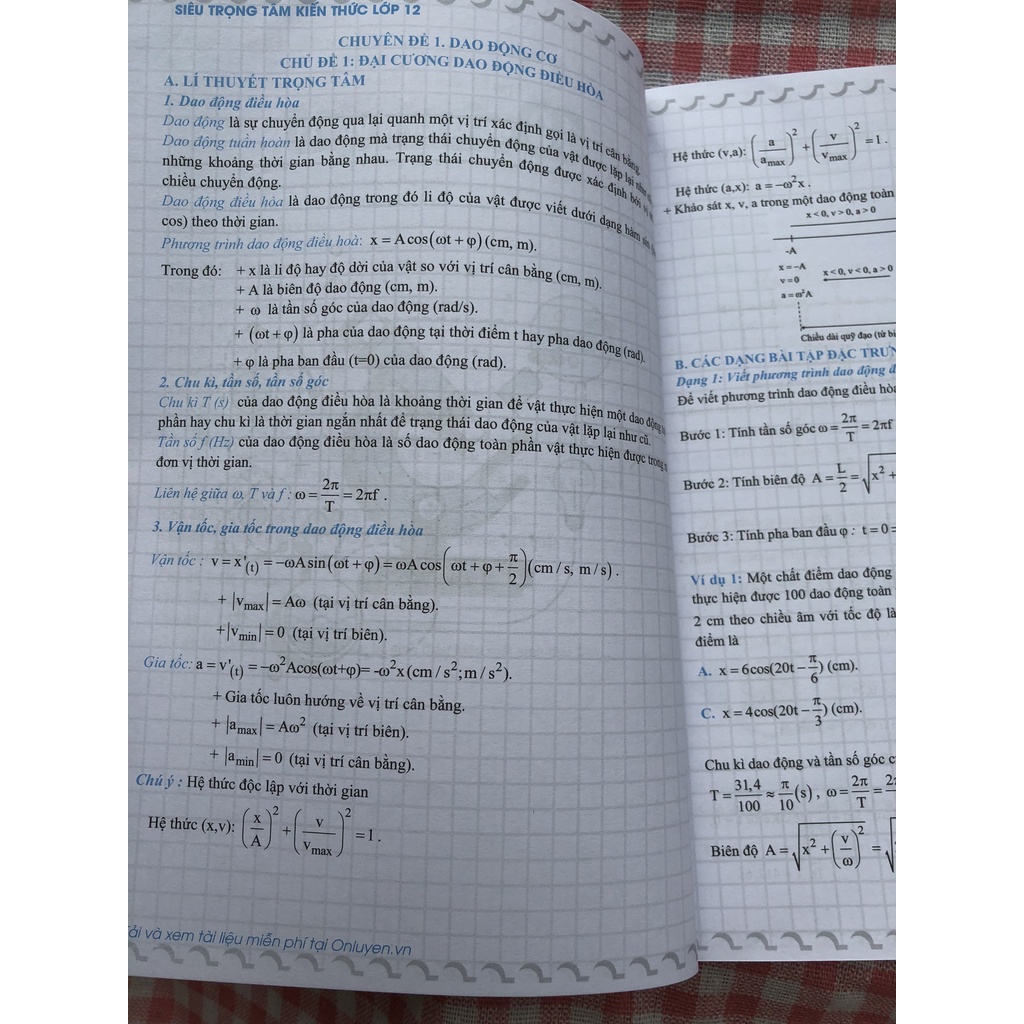 SIÊU TRỌNG TÂM KIẾN THỨC LỚP 12
CHUYÊN ĐỀ 1. DAO ĐỘNG CƠ
CHỦ ĐỀ 1: ĐẠI CƯƠNG DAO ĐỘNG ĐIỀU HÒA
A. LÍ THUYẾT TRỌNG TÂM
1. Dao động điều hòa
Dao động là sự chuyển động qua lại quanh một vị trí xác định gọi là vị trí cân bằng.
Dao động tuần hoàn là dao động mà trạng thái chuyển động của vật được lặp lại như
những khoảng thời gian bằng nhau. Trạng thái chuyển động được xác định bởi
chiều chuyển động.
Dao động điều hòa là dao động trong đó li độ của vật được viết dưới dạng hàm sin
cos) theo thời gian.
Phương trình dao động điều hoà: x = Acos(ωt + φ)(cm, m).
Trong đó: + x là li độ hay độ dời của vật so với vị trí cân bằng (cm, m).
+ A là biên độ dao động (cm, m).
+ ω là tần số góc của dao động (rad/s).
+ (ωt + φ) là pha của dao động tại thời điểm t hay pha dao động (rad).
+ φ là pha ban đầu (t=0) của dao động (rad).
2. Chu kì, tần số, tần số góc
Chu kì T (s) của dao động điều hòa là khoảng thời gian để vật thực hiện một dao động
phần hay chu kì là thời gian ngắn nhất để trạng thái dao động của vật lặp lại như cũ.
Tần số f (Hz) của dao động điều hòa là số dao động toàn phần vật thực hiện được trong
đơn vị thời gian.
Liên hệ giữa ω, T và f : ω = 2π/T = 2πf .
3. Vận tốc, gia tốc trong dao động điều hòa
Vận tốc : v = x'(t) = −ωA sin(ωt + φ) = ωA cos(ωt + φ + π/2)(cm / s, m / s) .
+ |vmax| = Aω (tại vị trí cân bằng).
+ |vmin| = 0 (tại vị trí biên).
Gia tốc: a = v'(t) = −ω²Acos(ωt+φ)= -ω²x(cm / s²; m / s²).
+ Gia tốc luôn hướng về vị trí cân bằng.
+ |amax| = Aω² (tại vị trí biên).
+ |amin| = 0 (tại vị trí cân bằng).
Chú ý : Hệ thức độc lập với thời gian
Hệ thức (x,v): (x/A)² + (v/vmax)² = 1 .
ải và xem tài liệu miễn phí tại Onluyen.vn
Hệ thức (v,a): (a/amax)² + (v/vmax)² = 1 .
Hệ thức (a,x): a = −ω²x .
+ Khảo sát x, v, a trong một dao động toàn
x < 0, v > 0, a > 0
-A
x = −A
v = 0
a = ω²A
x < 0, v < 0, a > 0
Chiều dài quỹ đạo (từ bi
B. CÁC DẠNG BÀI TẬP ĐẶC TRƯN
Dạng 1: Viết phương trình dao động đ
Để viết phương trình dao động điều hò
Bước 1: Tính tần số góc ω = 2π/T = 2πf
Bước 2: Tính biên độ A = L/2 = √x² +
Bước 3: Tính pha ban đầu φ : t = 0 =
Ví dụ 1: Một chất điểm dao động
thực hiện được 100 dao động toàn
2 cm theo chiều âm với tốc độ là
điểm là
A. x = 6cos(20t − π/6) (cm).
C. x = 4cos(20t − π/3) (cm).
Chu kì dao động và tần số góc c
T = 31,4/100 ≈ π/10 (s) , ω = 2π/T =
Biên độ A = √x² + (v/ω)² = √